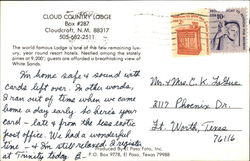 CLOUD COUNTRY LODGE
Box #287
Cloudcroft, N.M. 88317
505-682-2511
The world famous Lodge is one of the few remaining luxury, year round resort hotels. Nestled among the stately pines at 9,200', guests are afforded a breathtaking view of White Sands.
I'm home safe & sound with
cards left over. In other words,
I ran out of time when we came
home a day early. So here's your
card - late & from the Texas exotic
post office. We had a wonderful
time - & I'm still relaxed. I register
at Trinity today
Mr. & Mrs. C. K.
2117 Phoenix Dr.
Ft. Worth, Texas
76116
Produced By: El Paso Foto, Inc.
P. O. Box 9778, El Paso, Texas 79988